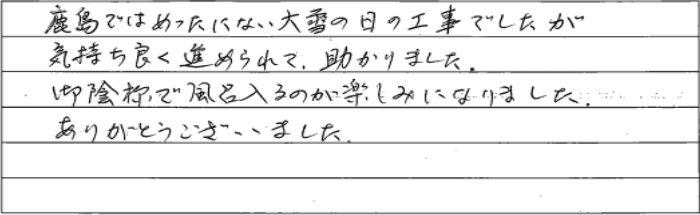 鹿島ではめったにない大雪の日の工事でしたが
気持ち良く進められて、助かりました。
御陰様で風呂入るのが楽しみになりました。
ありがとうございました。